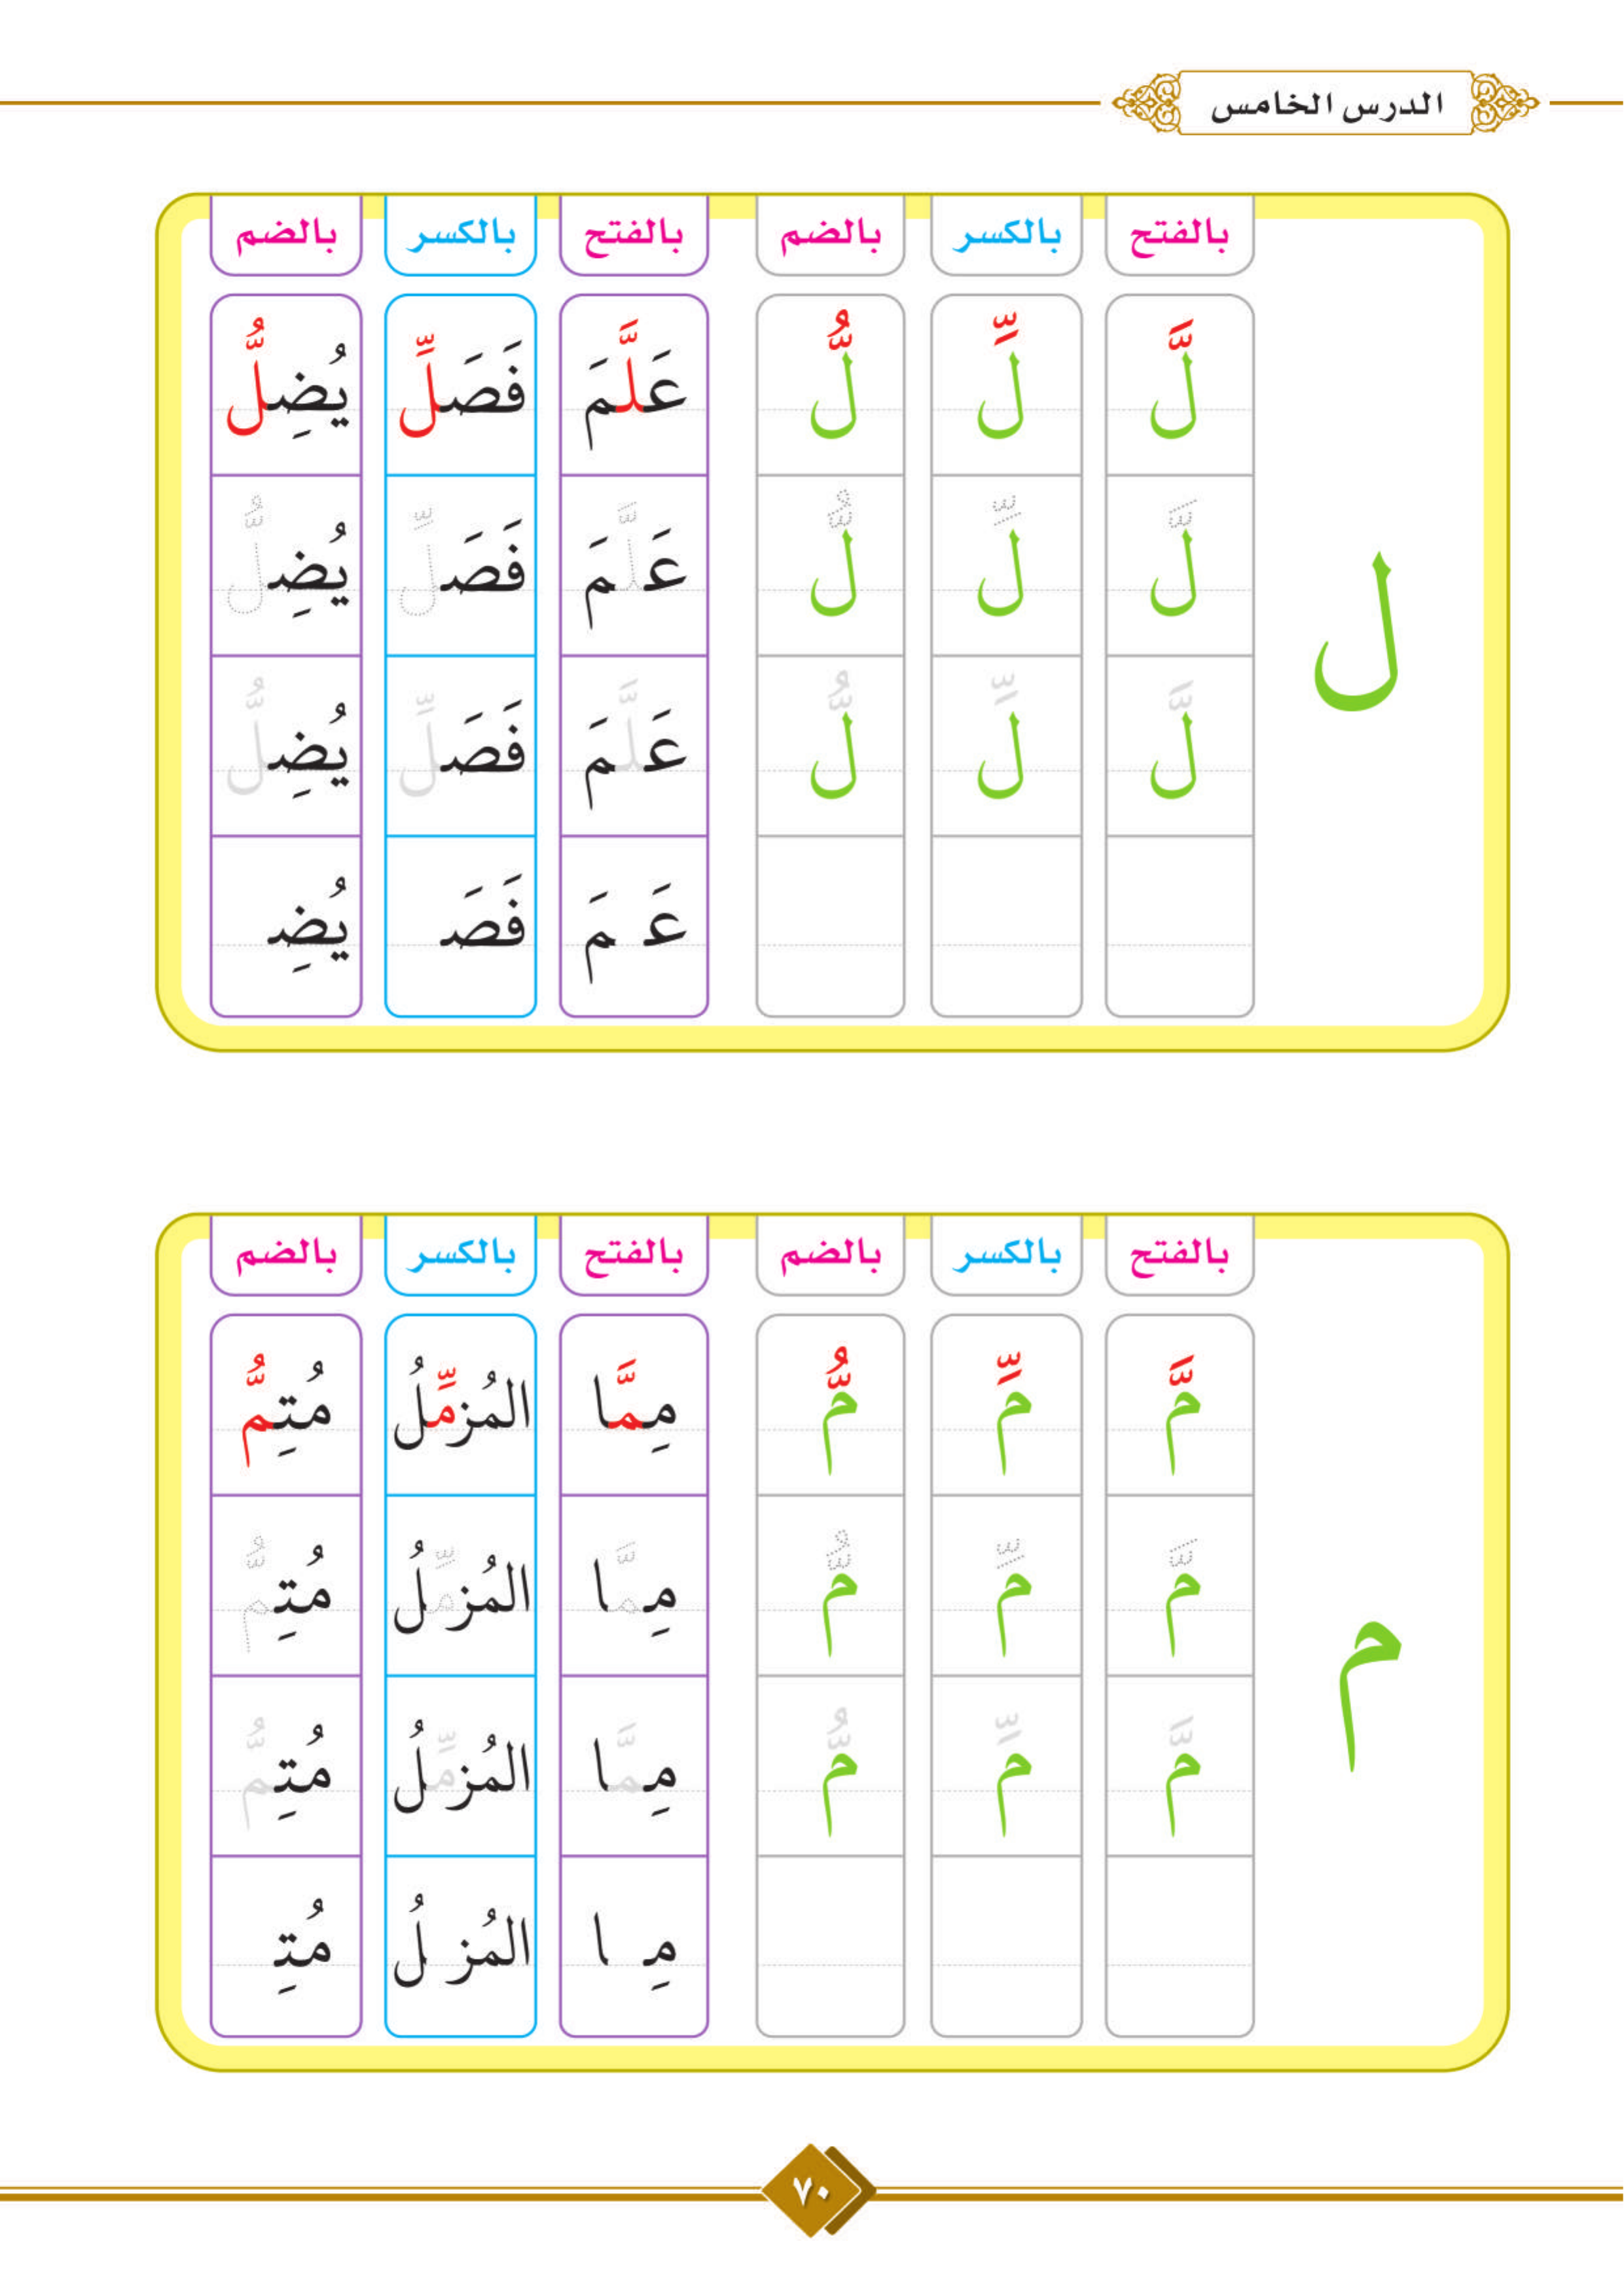 الدرس الخامس
بالفتح بالكسر بالضم بالفتح بالكسر بالضم
لَّ لِّ لُّ عَلَّمَ فَصَلِّ يُضِلُّ
لَّ لِّ لُّ عَلَّمَ فَصَلِّ يُضِلُّ
ل
لَّ لِّ لُّ عَلَّمَ فَصَلِّ يُضِلُّ
عَـ ـمَ فَصَـ يُضِـ
بالفتح بالكسر بالضم بالفتح بالكسر بالضم
مَّ مِّ مُّ مِمَّا المُزمِّلُ مُتِمُّ
مَّ مِّ مُّ مِمَّا المُزمِّلُ مُتِمُّ
م
مَّ مِّ مُّ مِمَّا المُزمِّلُ مُتِمُّ
مِـ ـا المُز ـلُ مُتِـ
٧٠